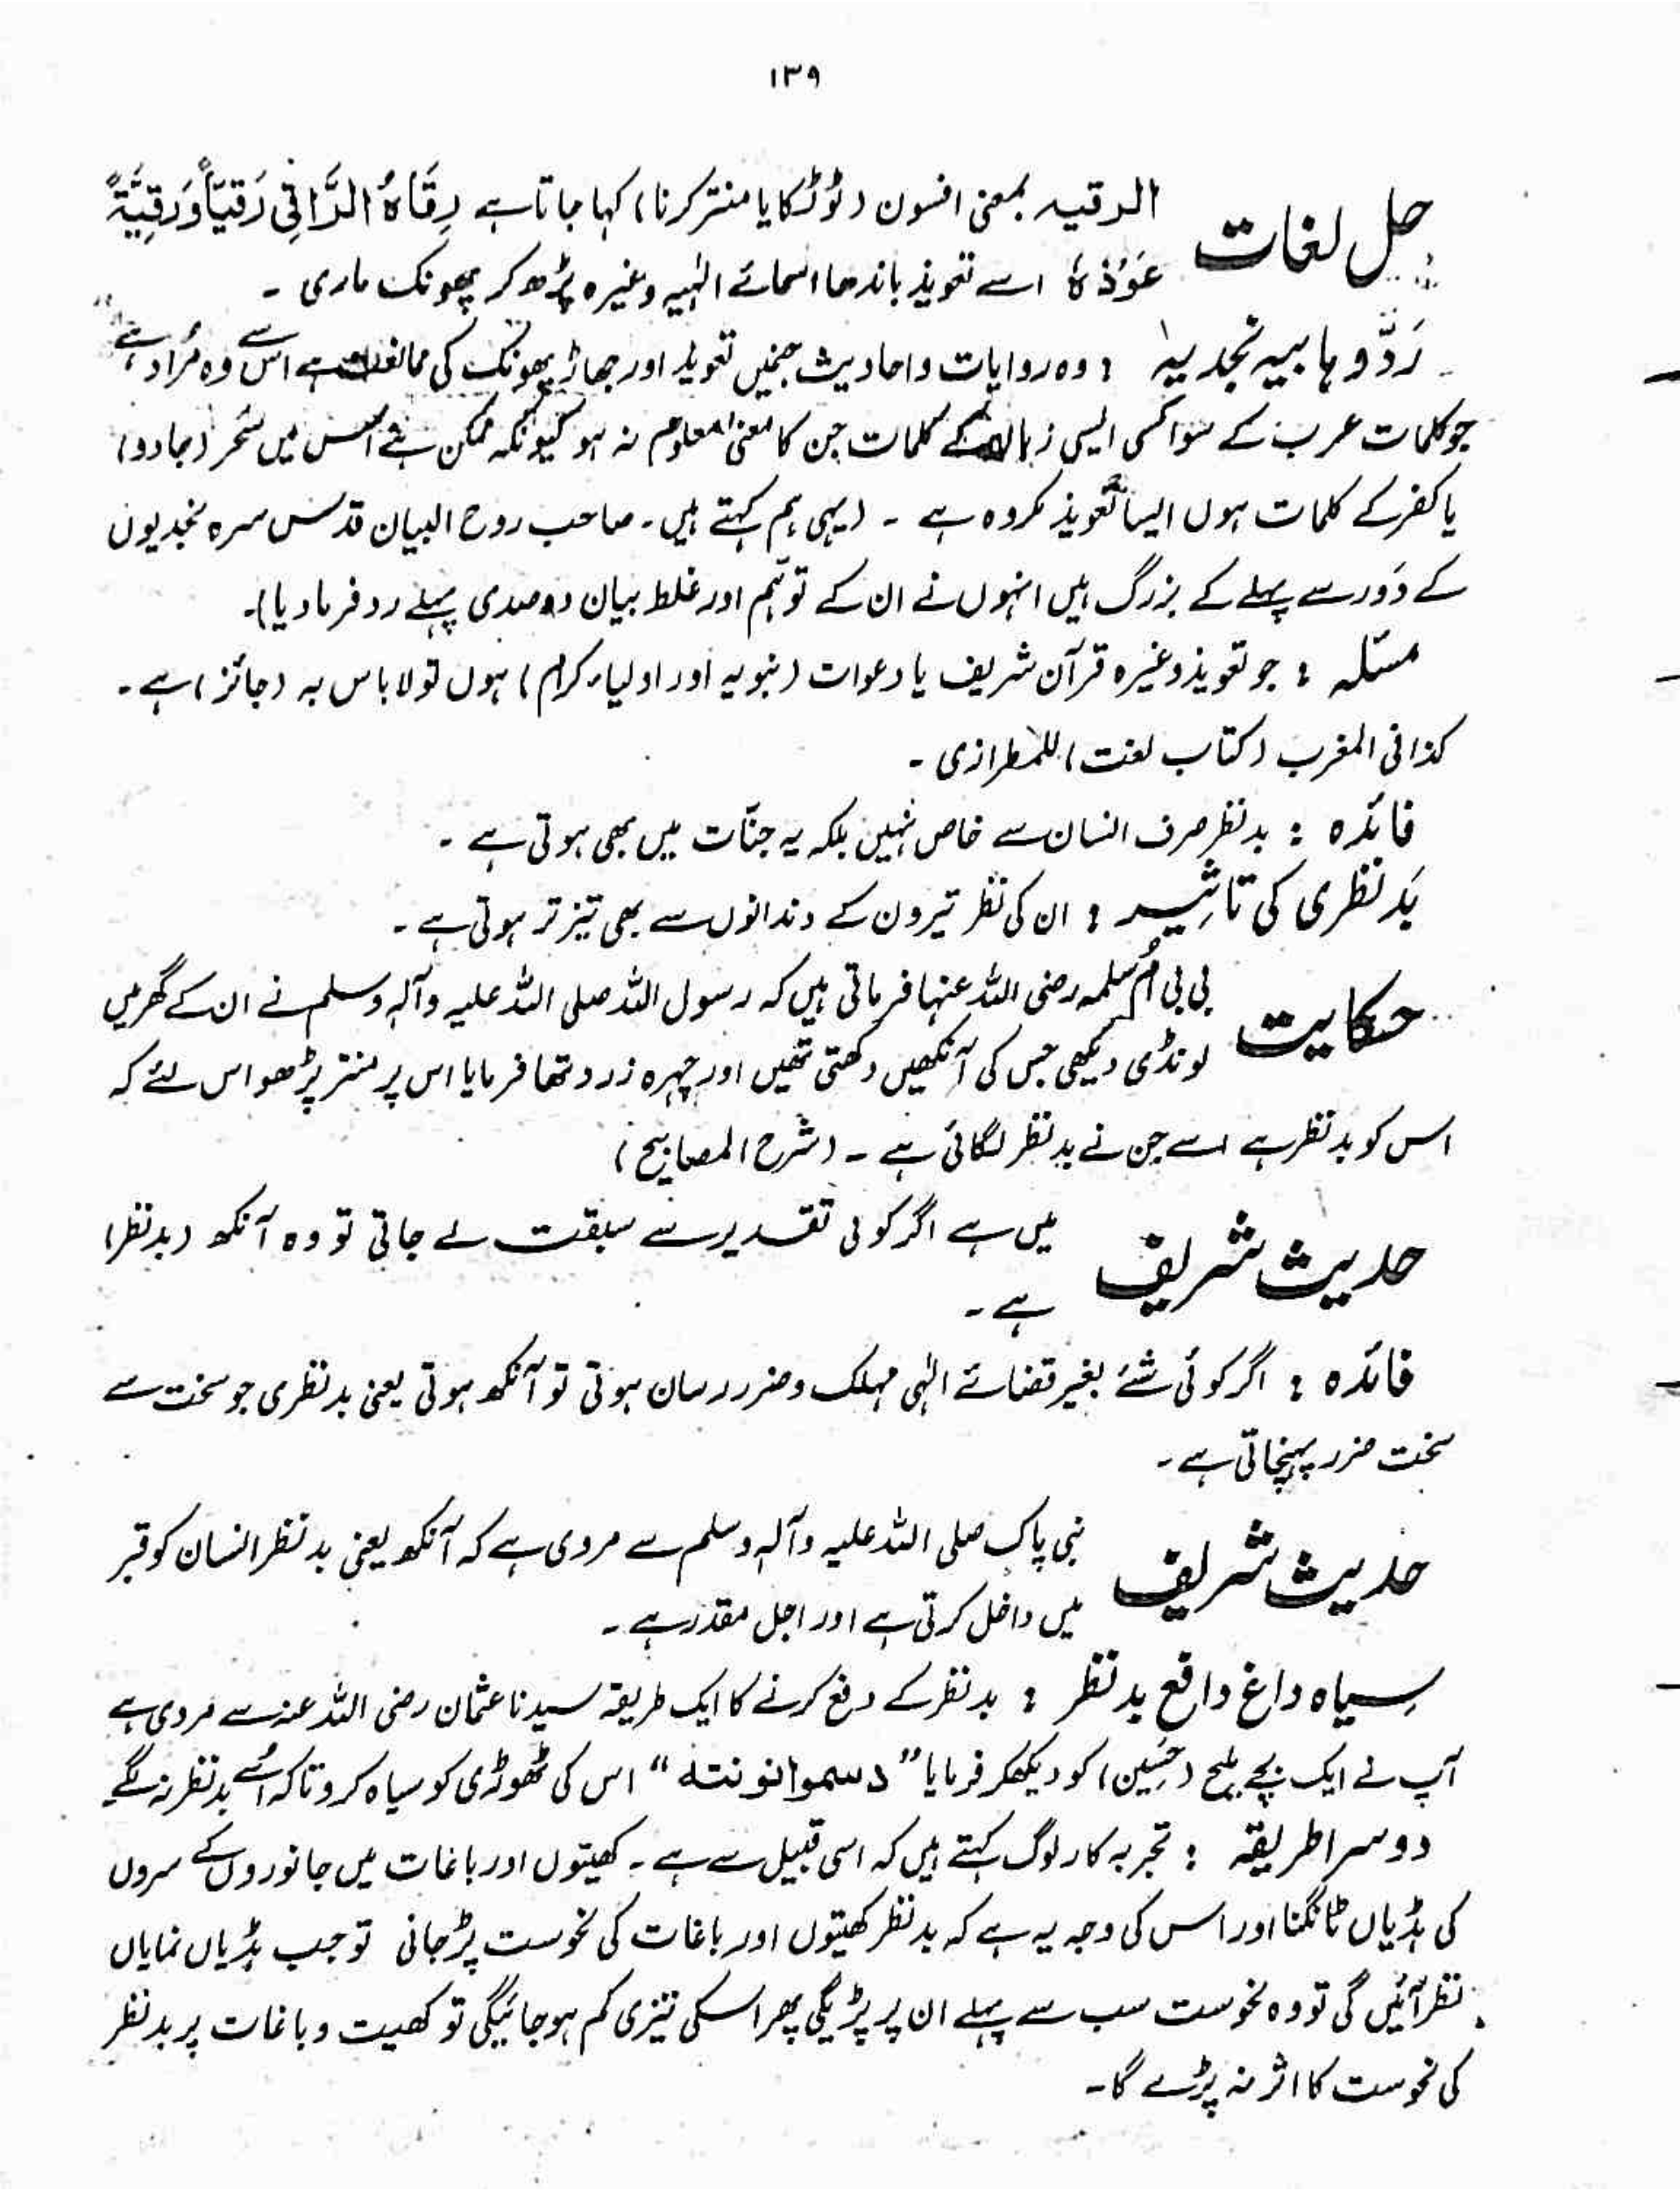 ۱۳۹
حل لغات الرقیہ بمعنی افسون (ٹوٹکا یا منتر کرنا) کہا جاتا ہے رِقَاہُ الرَّاقِی رَقیَاً وَرَقِیَّۃً
عَوَّذَہٗ اسے تعویذ باندھا اسمائے الٰہیہ وغیرہ پڑھ کر پھونک ماری ۔
رَدِّ وہابیہ نجدیہ : وہ روایات و احادیث جنمیں تعویذ اور جھاڑ پھونک کی ممانعت ہے اس سے وہ مُراد ہے
جو کلمات عرب کے سوا کسی ایسی زبان کے کلمات جن کا معنیٰ معلوم نہ ہو کیونکہ ممکن ہے اُس میں سَحر (جادو)
یا کفر کے کلمات ہوں ایسا تعویذ مکروہ ہے ۔ (یہی ہم کہتے ہیں ۔ صاحب روح البیان قدس سرہ نجدیوں
کے دَور سے پہلے کے بزرگ ہیں انہوں نے ان کے توہّم اور غلط بیان دو صدی پہلے رد فرما دیا)۔
مسئلہ : جو تعویذ وغیرہ قرآن شریف یا دعوات (نبویہ اور اولیاء کرام) ہوں تو لا باس بہ (جائز) ہے ۔
کذا فی المغرب (کتاب لغت) للمطرازی ۔
فائدہ : بد نظر صرف انسان سے خاص نہیں بلکہ یہ جنّات میں بھی ہوتی ہے ۔
بَد نظری کی تاثِیر : ان کی نظر تیرون کے دندانوں سے بھی تیز تر ہوتی ہے ۔
حکایت بی بی اُم سلمہ رضی اللہ عنہا فرماتی ہیں کہ رسول اللہ صلی اللہ علیہ وآلہ وسلم نے ان کے گھر میں
لونڈی دیکھی جس کی آنکھیں دکھتی تھیں اور چہرہ زرد تھا فرمایا اس پر منتر پڑھو اس لئے کہ
اس کو بد نظر ہے اسے جن نے بد نظر لگائی ہے ۔ (شرح المصابیح)
حدیث شریف میں ہے اگر کوئی تقدیر سے سبقت لے جاتی تو وہ آنکھ (بدنظر)
ہے ۔
فائدہ : اگر کوئی شئے بغیر قضائے الٰہی مہلک و ضرر رسان ہوتی تو آنکھ ہوتی یعنی بد نظری جو سخت سے
سخت ضرر پہنچاتی ہے ۔
حدیث شریف نبی پاک صلی اللہ علیہ وآلہ وسلم سے مروی ہے کہ آنکھ یعنی بد نظر انسان کو قبر
میں داخل کرتی ہے اور اجل مقدر ہے ۔
سِیاہ داغ دافع بد نظر : بد نظر کے دفع کرنے کا ایک طریقہ سیدنا عثمان رضی اللہ عنہ سے مروی ہے
آپ نے ایک بچے ملیح (حَسِین) کو دیکھکر فرمایا "دسموا نونتہ" اس کی ٹھوڑی کو سیاہ کرو تاکہ اُسے بد نظر نہ لگے۔
دوسرا طریقہ : تجربہ کار لوگ کہتے ہیں کہ اسی قبیل سے ہے ۔ کھیتوں اور باغات میں جانوروں کے سروں
کی ہڈیاں ٹانگنا اور اس کی وجہ یہ ہے کہ بد نظر کھیتوں اور باغات کی نحوست پڑ جاتی تو جب ہڈیاں نمایاں
نظر آئیں گی تو وہ نحوست سب سے پہلے ان پر پڑیگی پھر اسکی تیزی کم ہوجائیگی تو کھیت و باغات پر بدنظر
کی نحوست کا اثر نہ پڑے گا ۔